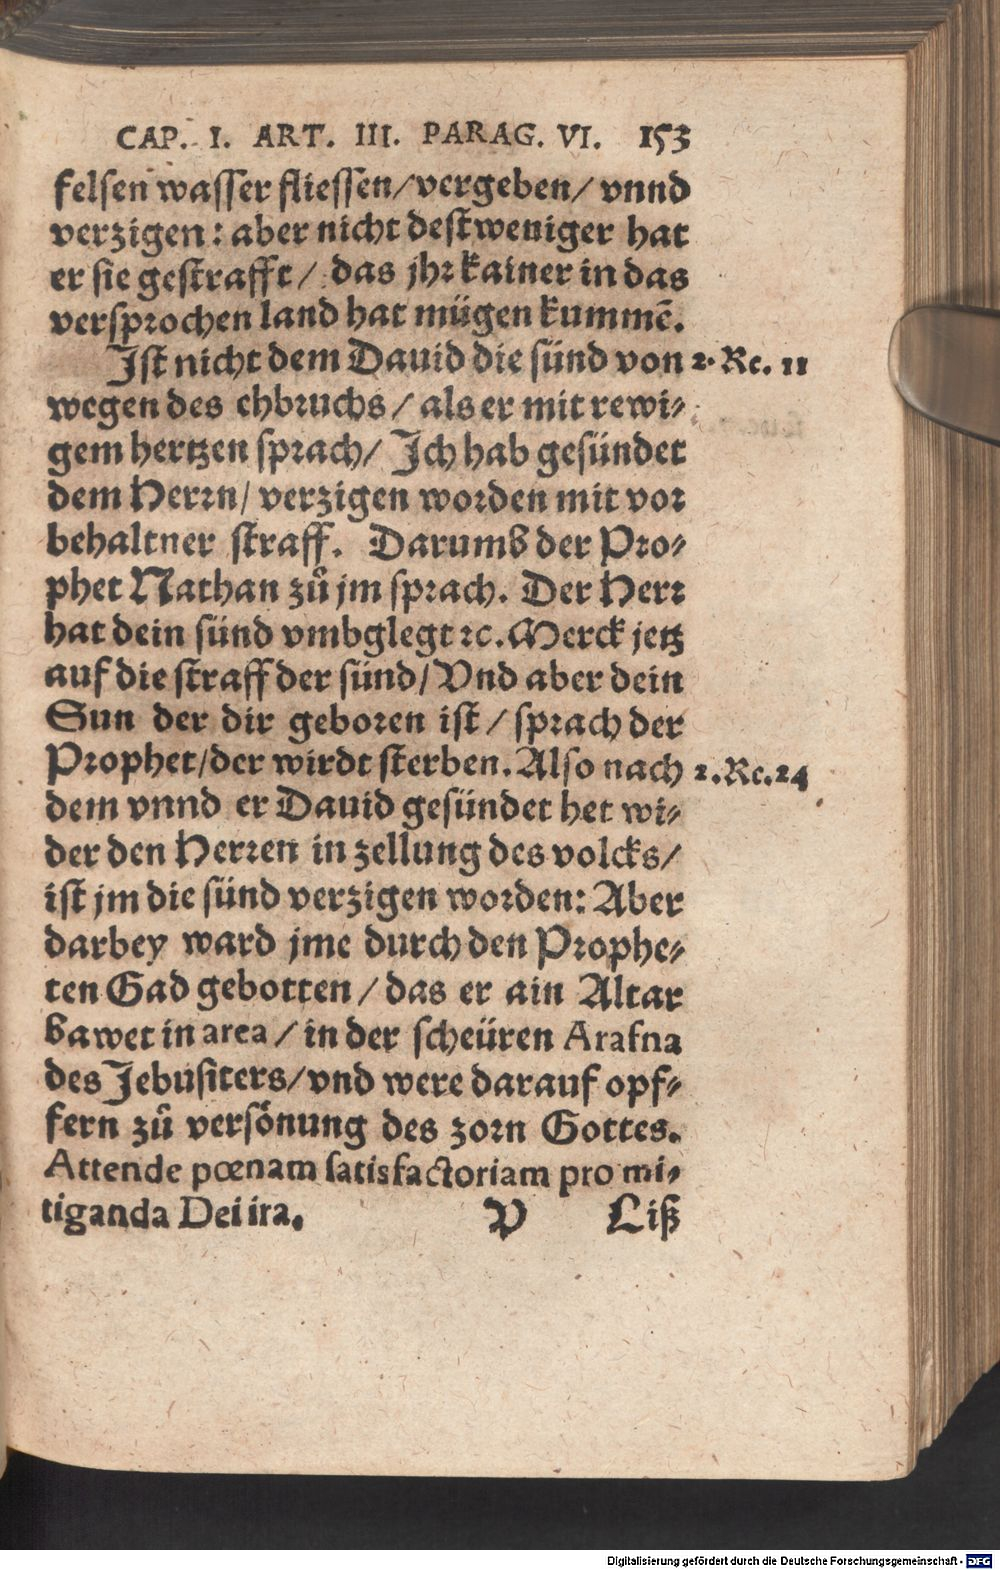 CAP. I. ART. III. PARAG. VI. 153
felsen wasser fliessen/vergeben/ vnnd
verzigen: aber nicht destweniger hat
er sie gestrafft/ das jhr kainer in das
versprochen land hat mügen kummē.
Ist nicht dem Dauid die sünd von 2. Re. 11
wegen des ehbruchs/ als er mit rewi-
gem hertzen sprach/ Ich hab gesündet
dem Herrn/ verzigen worden mit vor
behaltner straff. Darumb der Pro-
phet Nathan zů jm sprach. Der Herr
hat dein sünd vmbglegt ꝛc. Merck jetz
auf die straff der sünd/ Vnd aber dein
Sun der dir geboren ist/ sprach der
Prophet/der wirdt sterben. Also nach 2. Re. 24
dem vnnd er Dauid gesündet het wi-
der den Herren in zellung des volcks/
ist jm die sünd verzigen worden: Aber
darbey ward jme durch den Prophe-
ten Gad gebotten/ das er ain Altar
bawet in area/ in der scheüren Arafna
des Jebusiters/vnd were darauf opf-
fern zů versönung des zorn Gottes.
Attende pœnam satisfactoriam pro mi-
tiganda Dei ira. P Liß
Digitalisierung gefördert durch die Deutsche Forschungsgemeinschaft - DFG